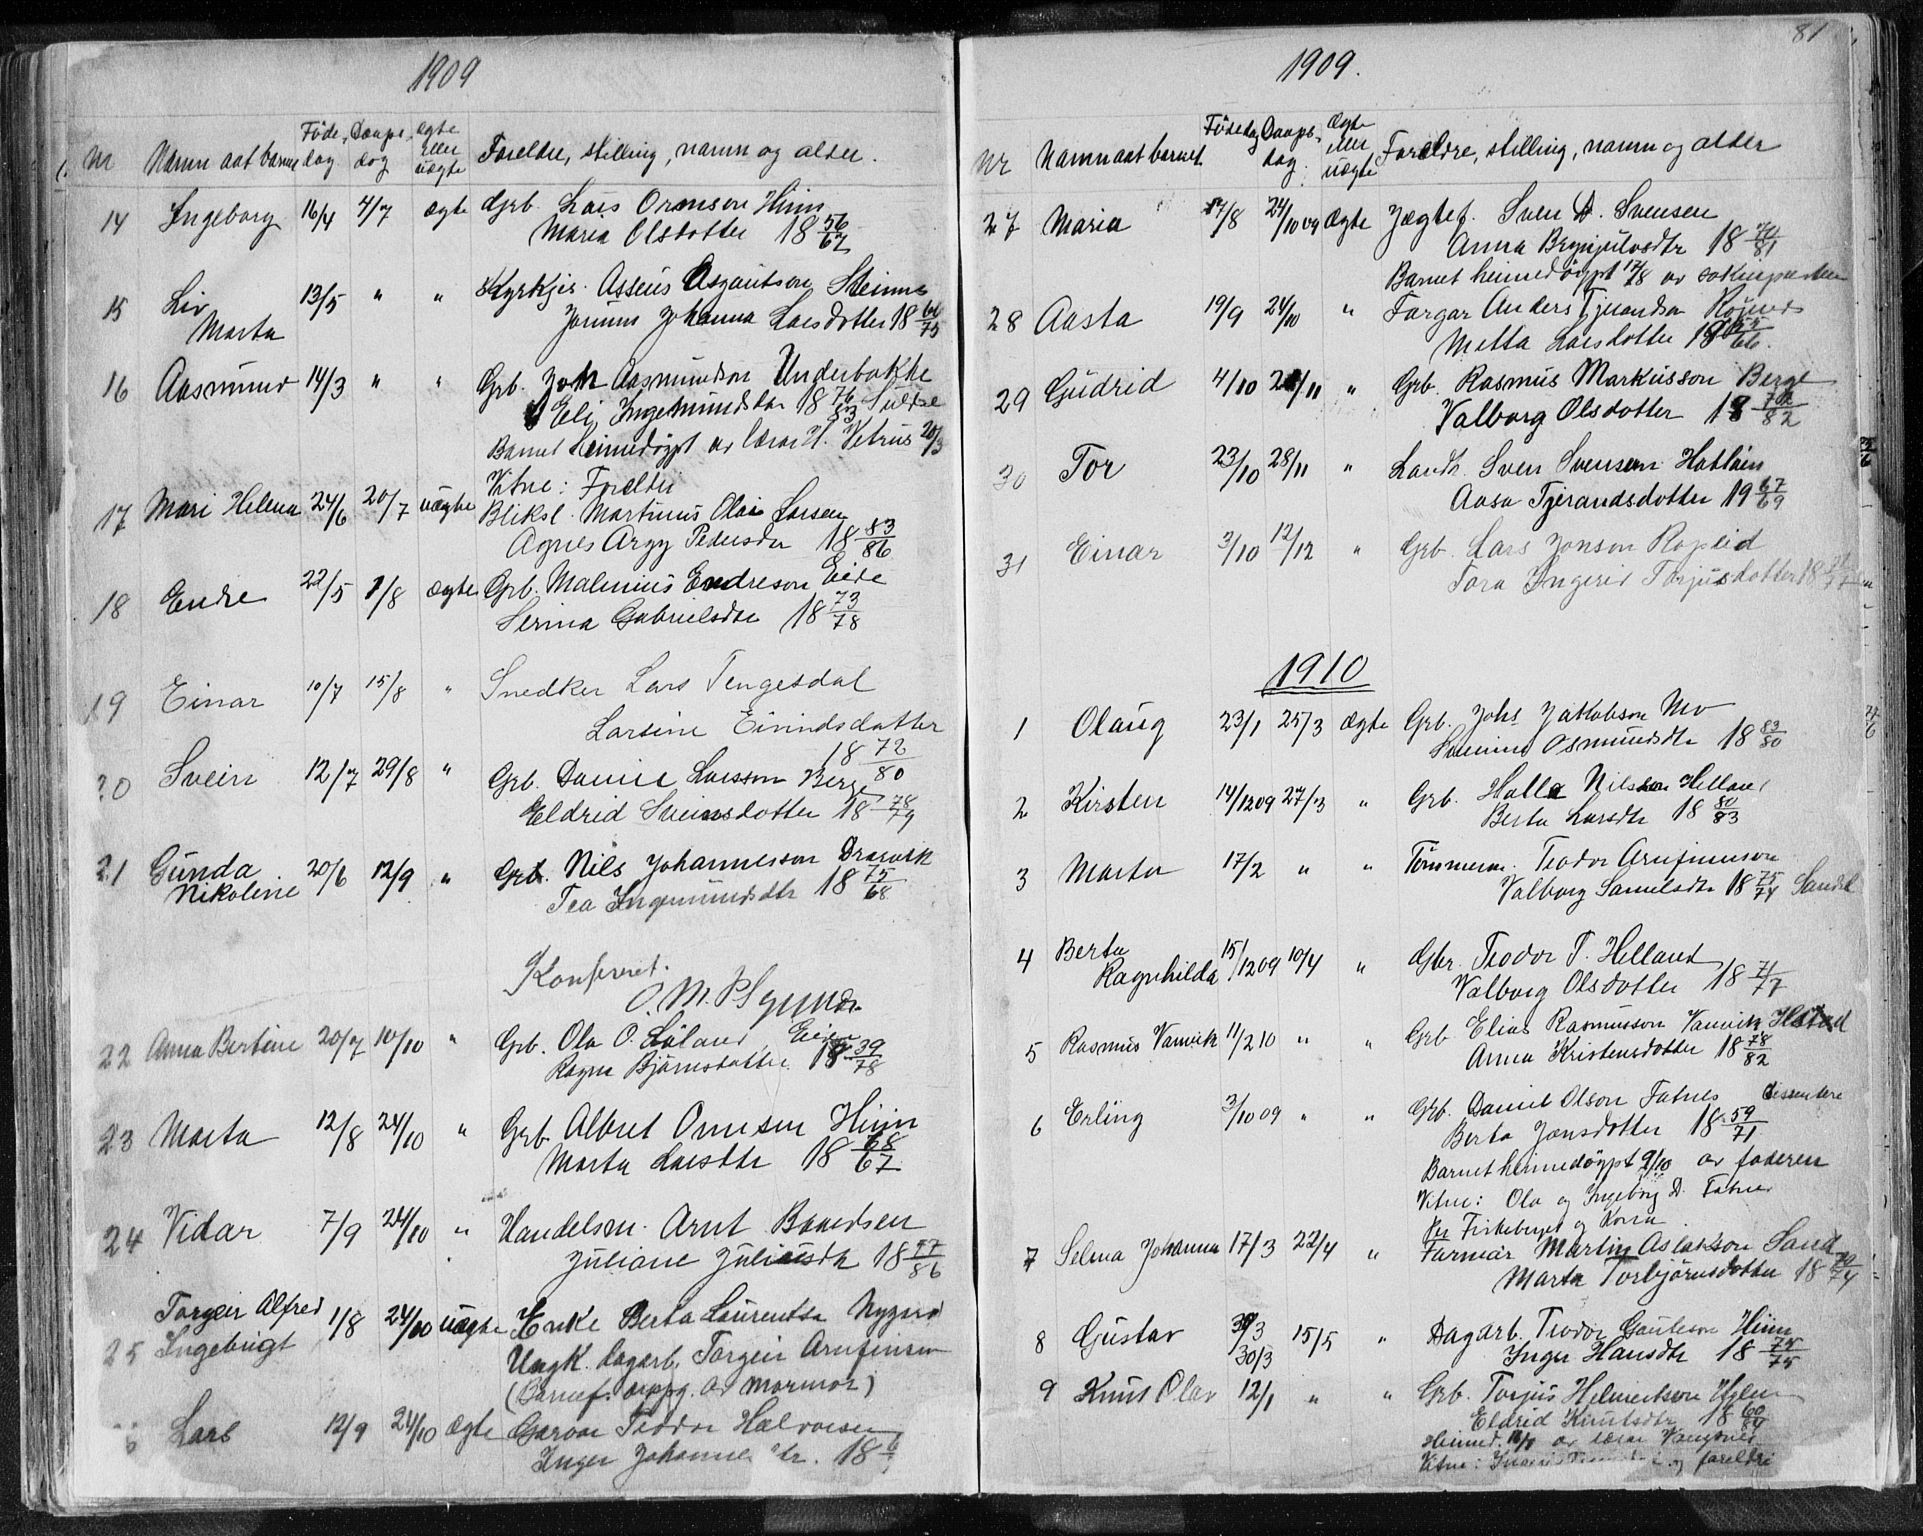 1909
Nr Namn aat barne Føde. dag Daaps. dog ægte eller uægte Foreldre, stilling, namn og alder.
14 Ingeborg 16/4 4/7 ægte Grb. Lars Ormson Hiim
Maria Olsdotter 18 56/62
15 Liv 13/5 " " Kyrkjer. Asseus Asgautson Steinn
Marta Johanna Larsdotter 18 /75
16 Aasmund 14/3 " " Grb. John Aasmundson Underbakke
Eli Ingemundsdtr 18 76/83 Suldal
Barnet heimedøypt av lærar H. Vetrus 20/3
Vitne: Foreldri
17 Mari Helena 24/6 20/7 uægte Bliksl. Martinus Olai Larsen
Agnes Argy Pedersdr 18 83/86
18 Endre 22/5 1/8 ægte Grb. Malenius Endreson Eide
Serina Gabrielsdtr 18 73/78
19 Einar 10/7 15/8 " Snedker Lars Tengesdal
Larsine Eivindsdatter
18 72/80
20 Svein 12/7 29/8 " Grb. Daniel Larsson Berge
Eldrid Sveinsdotter 18 78/79
21 Gunda 20/6 12/9 " Grb. Nils Johannesson Dravik
Nikoline Tea Ingemundsdtr 18 75/68
Konfereret.
22 Anna Bertine 20/7 10/10 " Grb. Ola O. Løland
Ragna Bjørnsdotter 18 39/78
23 Marta 12/8 24/10 " Grb Albret Ormsen Hiim
Marta Larsdtr 18 68/67
24 Vidar 7/9 24/10 " Handelsm. Arnt Baardsen
Juliane Juliusdtr 18 77/86
Torgeir Alfred
25 Ingebrigt 1/8 24/10 uægte Enke Berta Laurentsa Nygaard
Ungk. dagarb. Torgeir Arnfinsen
(Barnef. oppg. av mormor)
Lars 12/9 24/10 ægte Garvar Teodor Halvorsen
Inger Johanne dtr. 18
81
1909.
Nr Namn aat barnet. Fødedag Daaps. dag. Ægte eller uægte Foreldre, stilling, namn og alder
27 Maria 17/8 24/10 09 ægte Jægtef. Sven D. Svensen
Anna Brynjulvsdtr 18 70/81
Barnet heimedøypt 17/8 av soknepresten
28 Aasta 19/9 24/10 " Fargar Anders Tjerandsen
Metta Larsdotter
29 Gudrid 4/10 /11 " Grb. Rasmus Markusson Berge
Valborg Olsdotter 18 72/82
30 Tor 23/10 28/11 " Landh. Sven Svensen Hatløin
Aasa Tjerandsdotter 19 67/69
31 Einar 3/10 12/12 " Grb. Lars Jonson Røpeid
Tora Ingerid Torjusdotter 18 /77
1910
1 Olaug 23/1 25/3 ægte Grb. Johs Jakobson Mo
Osmundsdtr 18 83/80
2 Kirsten 14/12 09 27/3 " Grb. Halle Nilsson Helland
Berta Larsdtr 18 80/83
3 Marta 17/2 " " Tømmerm. Teodor Arnfinnson
Valborg Samelsdtr 18 75/74 Sandt
4 Berta 15/12 09 10/4 " Gbr. Teodor T. Helland
Ragnhilda Valborg Olsdotter 18 71/77
5 Rasmus Vanvik 11/2 10 " " Grb Elias Rasmusson Vanvik
Anna Kristensdotter 18 78/82
6 Erling 3/10 09 " " Grb. Daniel Olson Fatnes dissentere
Berta Jonsdotter 18 59/71
Barnet heimedøypt 9/10 av faderen
Vitne: Ola og Ingeborg D. Fatnes
Per Fiskeberget og Kona.
7 Selma Johanna 17/3 22/4 " Farmar Martin Aslakson Sand
Marta Torbjørnsdotter 18 /74
8 Gustav 30/3 15/5 " Dagarb. Teodor Gauteson Hiim
30/3 Inger Hansdtr 18 75/75
9 Knut Olav 12/1 " " Grb. Torjus Helmikson
Eldrid Knutsdtr 18 60/
Heimed. av lærar
Vitne: og foreldri